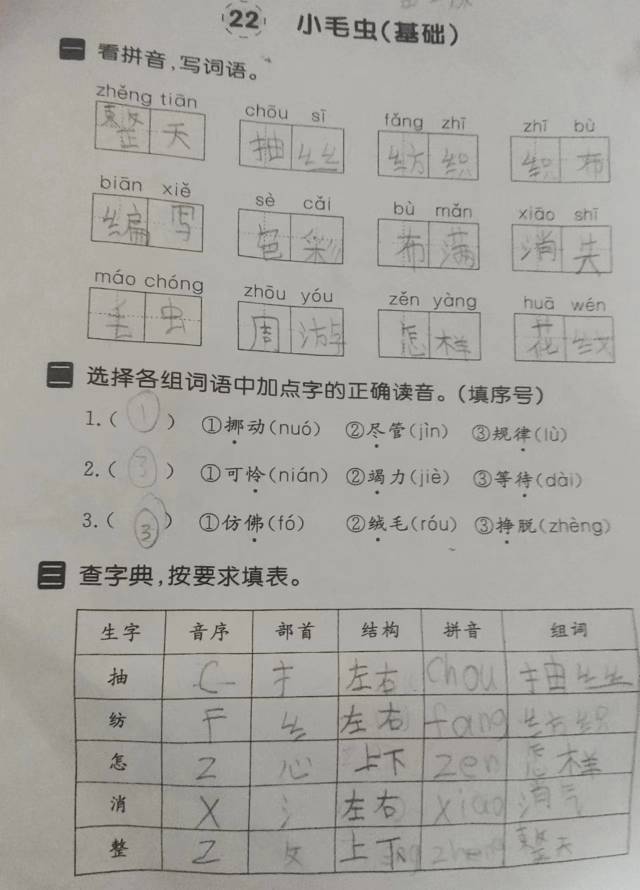 22 小毛虫(基础)
一 看拼音,写词语。
zhěng tiān chōu sī fǎng zhī zhī bù
整天 抽丝 纺织 织布
biān xiě sè cǎi bù mǎn xiāo shī
编写 色彩 布满 消失
máo chóng zhōu yóu zěn yàng huā wén
毛虫 周游 怎样 花纹
二 选择各组词语中加点字的正确读音。(填序号)
1.( ① ) ①挪动(nuó) ②尽管(jìn) ③规律(lù)
2.( ③ ) ①可怜(nián) ②竭力(jiè) ③等待(dài)
3.( ③ ) ①仿佛(fó) ②绒毛(róu) ③挣脱(zhèng)
三 查字典,按要求填表。
生字 音序 部首 结构 拼音 组词
抽 C 扌 左右 chou 抽丝
纺 F 纟 左右 fang 纺织
怎 Z 心 上下 zen 怎样
消 X 氵 左右 xiao 消气
整 Z 攵 上下 zheng 整天